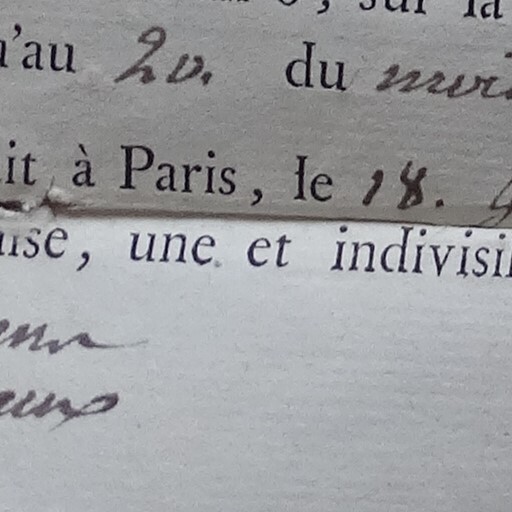 , sur la
'au 20. du
it à Paris, le 18.
use, une et indivisi